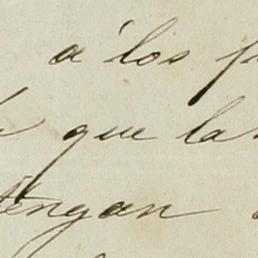 á los
que la
tengan